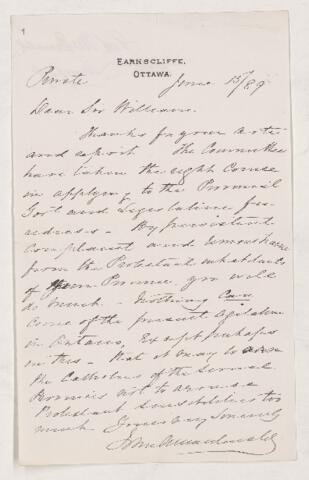 EARNSCLIFFE,
OTTAWA.
Private June 15/89
Dear Sir William.
Thanks for your note
and report The Committee
have taken the right course
in applying to the Provincial
Govt and Legislature for
redress - By persistent
complaint and remonstrance
from the Protestant inhabitants
of your Province you will
do much. Nothing can
come of the present agitation
in Ontario, Except perhaps
in this - that it may
the Catholics of the
Provinces not to arouse
Protestant sensibilities too
much Yours very sincerely
John A Macdonald